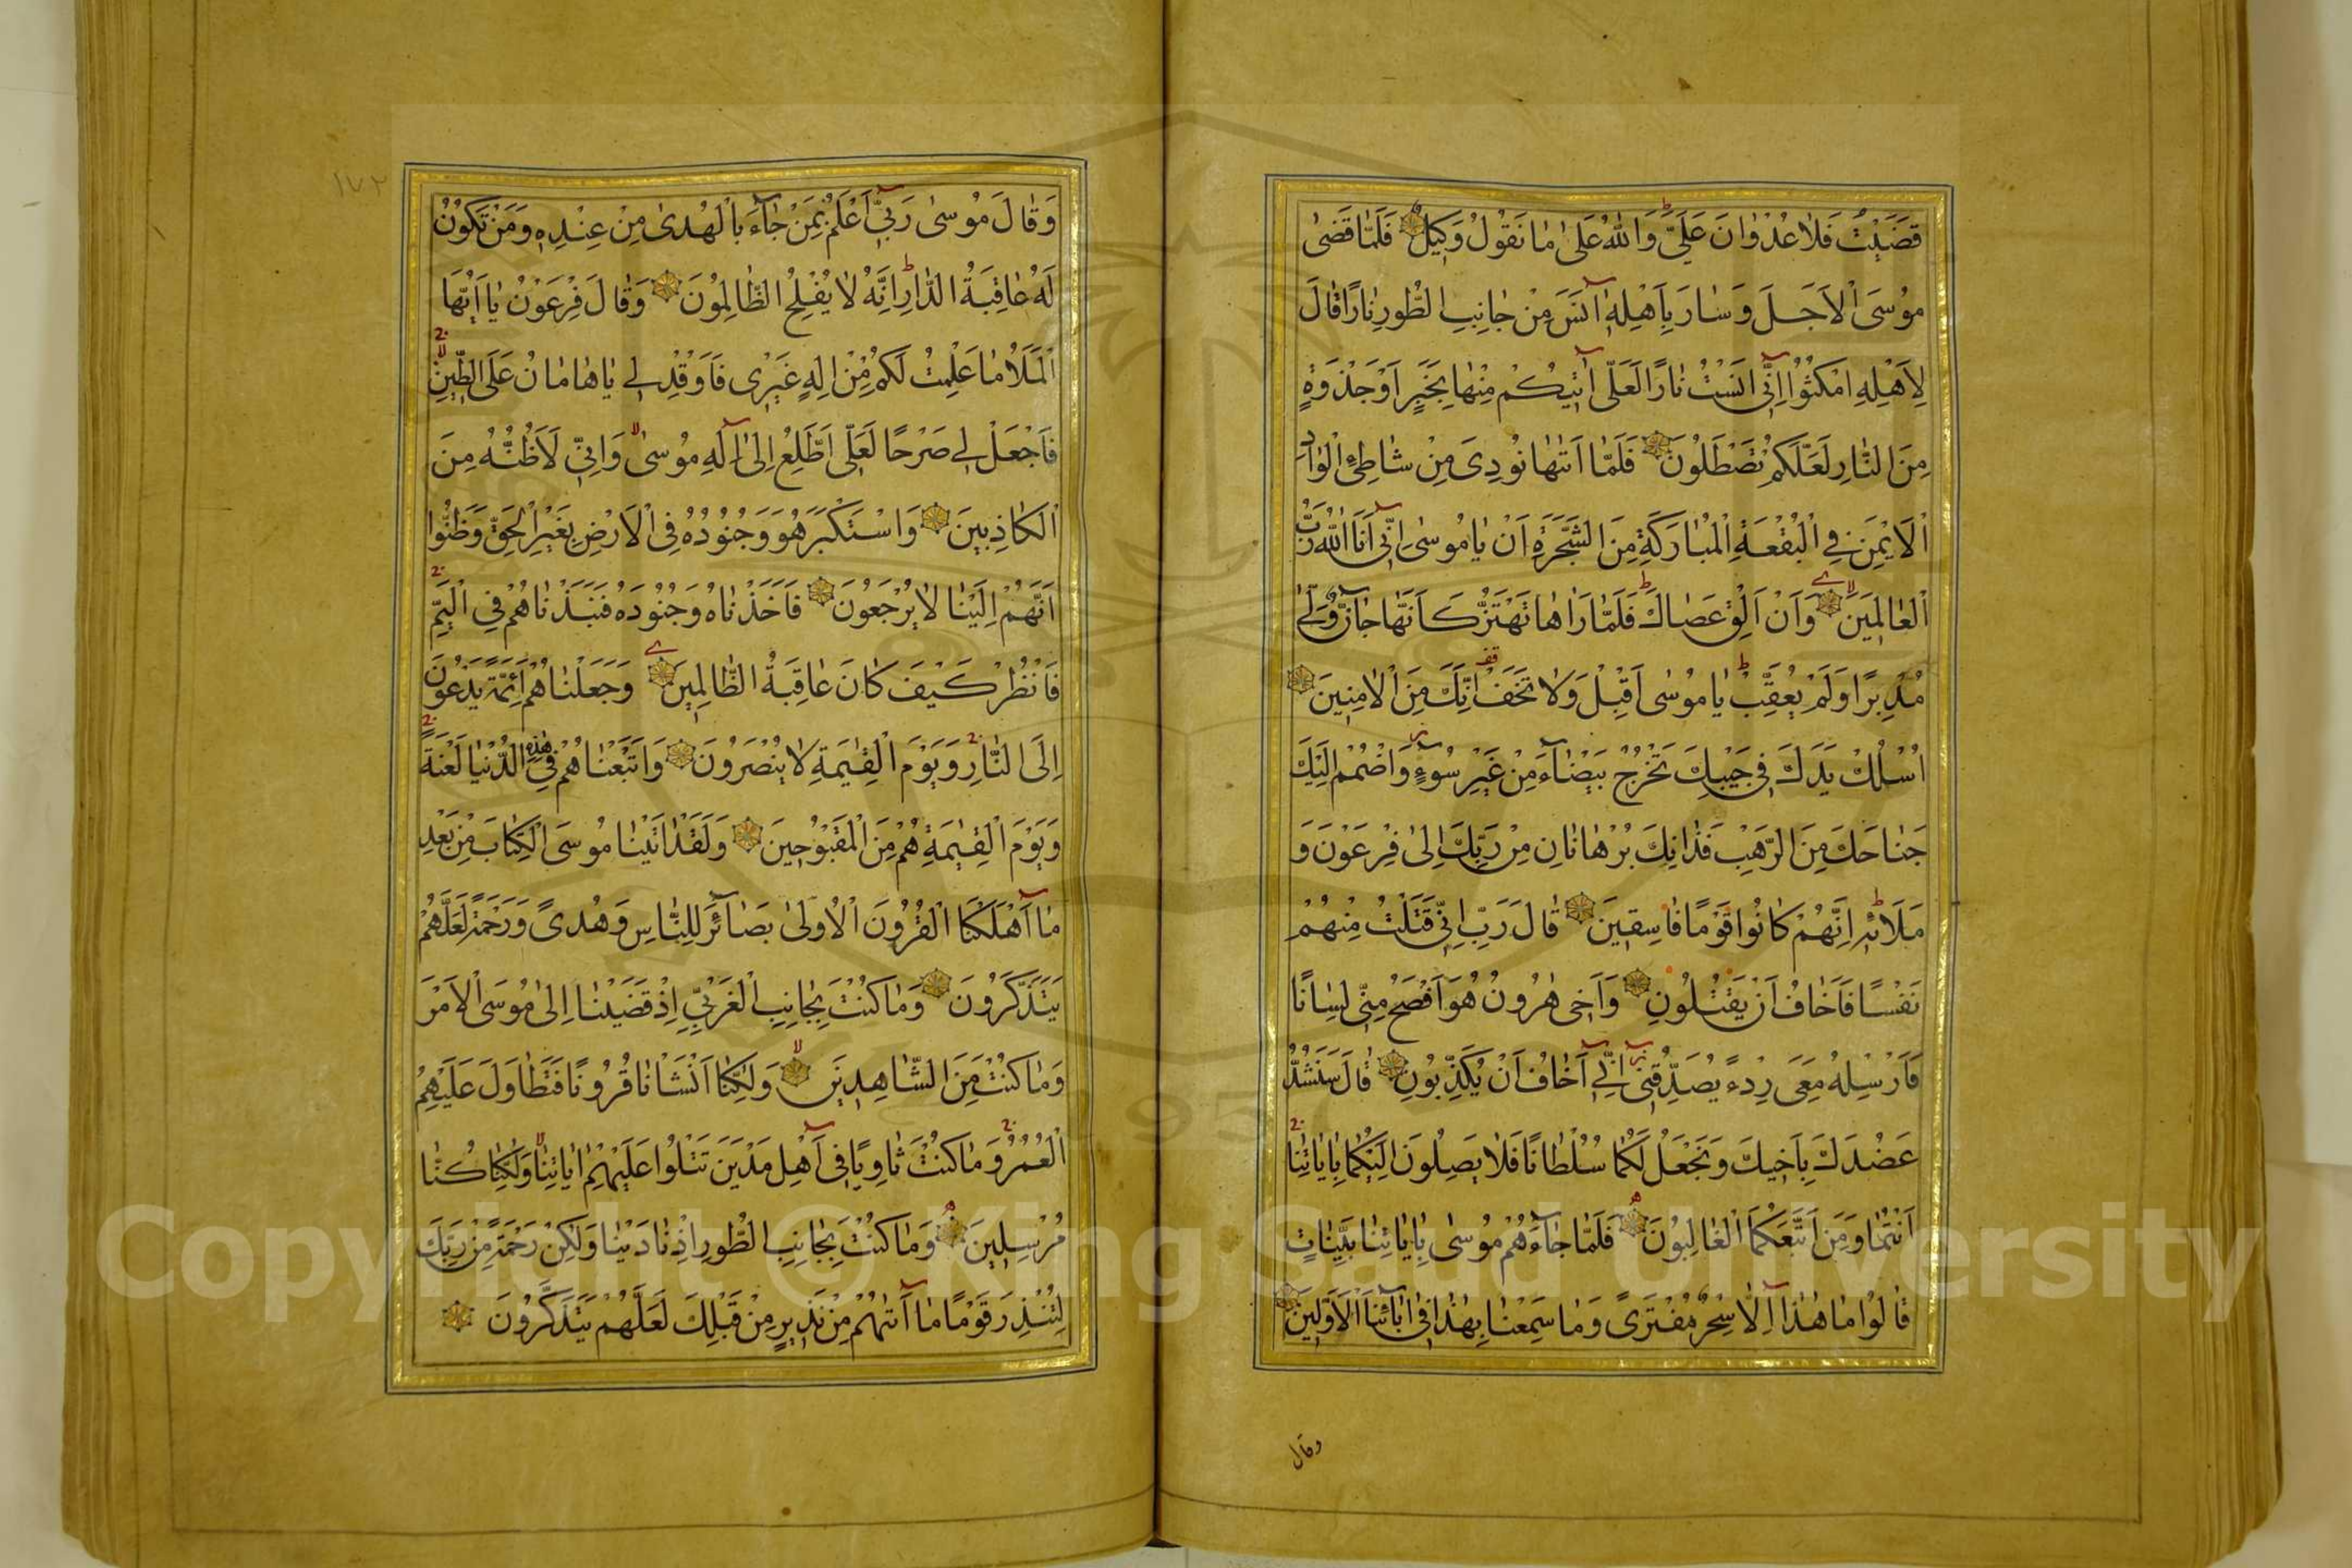 قَضَيْتُ فَلَا عُدْوَانَ عَلَيَّ وَاللّٰهُ عَلٰى مَا نَقُولُ وَكِيلٌ فَلَمَّا قَضٰى
مُوسَى الْاَجَلَ وَسَارَ بِاَهْلِهٖ اٰنَسَ مِنْ جَانِبِ الطُّورِ نَارًا قَالَ
لِاَهْلِهِ امْكُثُوا اِنّٖى اٰنَسْتُ نَارًا لَعَلّٖى اٰتٖيكُمْ مِنْهَا بِخَبَرٍ اَوْ جَذْوَةٍ
مِنَ النَّارِ لَعَلَّكُمْ تَصْطَلُونَ فَلَمَّا اَتٰيهَا نُودِىَ مِنْ شَاطِئِ الْوَادِ
الْاَيْمَنِ فِي الْبُقْعَةِ الْمُبَارَكَةِ مِنَ الشَّجَرَةِ اَنْ يَا مُوسٰى اِنّٖى اَنَا اللّٰهُ رَبُّ
الْعَالَمٖينَ وَاَنْ اَلْقِ عَصَاكَ فَلَمَّا رَاٰهَا تَهْتَزُّ كَاَنَّهَا جَانٌّ وَلّٰى
مُدْبِرًا وَلَمْ يُعَقِّبْ يَا مُوسٰى اَقْبِلْ وَلَا تَخَفْ اِنَّكَ مِنَ الْاٰمِنٖينَ
اُسْلُكْ يَدَكَ فٖى جَيْبِكَ تَخْرُجْ بَيْضَاءَ مِنْ غَيْرِ سُوءٍ وَاضْمُمْ اِلَيْكَ
جَنَاحَكَ مِنَ الرَّهْبِ فَذَانِكَ بُرْهَانَانِ مِنْ رَبِّكَ اِلٰى فِرْعَوْنَ وَ
مَلَائِهٖ اِنَّهُمْ كَانُوا قَوْمًا فَاسِقٖينَ قَالَ رَبِّ اِنّٖى قَتَلْتُ مِنْهُمْ
نَفْسًا فَاَخَافُ اَنْ يَقْتُلُونِ وَاَخٖى هٰرُونُ هُوَ اَفْصَحُ مِنّٖى لِسَانًا
فَاَرْسِلْهُ مَعِىَ رِدْءًا يُصَدِّقُنٖى اِنّٖى اَخَافُ اَنْ يُكَذِّبُونِ قَالَ سَنَشُدُّ
عَضُدَكَ بِاَخٖيكَ وَنَجْعَلُ لَكُمَا سُلْطَانًا فَلَا يَصِلُونَ اِلَيْكُمَا بِاٰيَاتِنَا
اَنْتُمَا وَمَنِ اتَّبَعَكُمَا الْغَالِبُونَ فَلَمَّا جَاءَهُمْ مُوسٰى بِاٰيَاتِنَا بَيِّنَاتٍ
قَالُوا مَا هٰذَا اِلَّا سِحْرٌ مُفْتَرًى وَمَا سَمِعْنَا بِهٰذَا فٖى اٰبَائِنَا الْاَوَّلٖينَ
وقال
١٧٢
وَقَالَ مُوسٰى رَبّٖى اَعْلَمُ بِمَنْ جَاءَ بِالْهُدٰى مِنْ عِنْدِهٖ وَمَنْ تَكُونُ
لَهُ عَاقِبَةُ الدَّارِ اِنَّهُ لَا يُفْلِحُ الظَّالِمُونَ وَقَالَ فِرْعَوْنُ يَا اَيُّهَا
الْمَلَاُ مَا عَلِمْتُ لَكُمْ مِنْ اِلٰهٍ غَيْرٖى فَاَوْقِدْ لٖى يَا هَامَانُ عَلَى الطّٖينِ
فَاجْعَلْ لٖى صَرْحًا لَعَلّٖى اَطَّلِعُ اِلٰى اِلٰهِ مُوسٰى وَاِنّٖى لَاَظُنُّهُ مِنَ
الْكَاذِبٖينَ وَاسْتَكْبَرَ هُوَ وَجُنُودُهُ فِى الْاَرْضِ بِغَيْرِ الْحَقِّ وَظَنُّوا
اَنَّهُمْ اِلَيْنَا لَا يُرْجَعُونَ فَاَخَذْنَاهُ وَجُنُودَهُ فَنَبَذْنَاهُمْ فِي الْيَمِّ
فَانْظُرْ كَيْفَ كَانَ عَاقِبَةُ الظَّالِمٖينَ وَجَعَلْنَاهُمْ اَئِمَّةً يَدْعُونَ
اِلَى النَّارِ وَيَوْمَ الْقِيٰمَةِ لَا يُنْصَرُونَ وَاَتْبَعْنَاهُمْ فٖى هٰذِهِ الدُّنْيَا لَعْنَةً
وَيَوْمَ الْقِيٰمَةِ هُمْ مِنَ الْمَقْبُوحٖينَ وَلَقَدْ اٰتَيْنَا مُوسَى الْكِتَابَ مِنْ بَعْدِ
مَا اَهْلَكْنَا الْقُرُونَ الْاُولٰى بَصَائِرَ لِلنَّاسِ وَهُدًى وَرَحْمَةً لَعَلَّهُمْ
يَتَذَكَّرُونَ وَمَا كُنْتَ بِجَانِبِ الْغَرْبِيِّ اِذْ قَضَيْنَا اِلٰى مُوسَى الْاَمْرَ
وَمَا كُنْتَ مِنَ الشَّاهِدٖينَ وَلٰكِنَّا اَنْشَاْنَا قُرُونًا فَتَطَاوَلَ عَلَيْهِمُ
الْعُمُرُ وَمَا كُنْتَ ثَاوِيًا فٖى اَهْلِ مَدْيَنَ تَتْلُوا عَلَيْهِمْ اٰيَاتِنَا وَلٰكِنَّا كُنَّا
مُرْسِلٖينَ وَمَا كُنْتَ بِجَانِبِ الطُّورِ اِذْ نَادَيْنَا وَلٰكِنْ رَحْمَةً مِنْ رَبِّكَ
لِتُنْذِرَ قَوْمًا مَا اَتٰيهُمْ مِنْ نَذٖيرٍ مِنْ قَبْلِكَ لَعَلَّهُمْ يَتَذَكَّرُونَ
Copyright © King Saud University